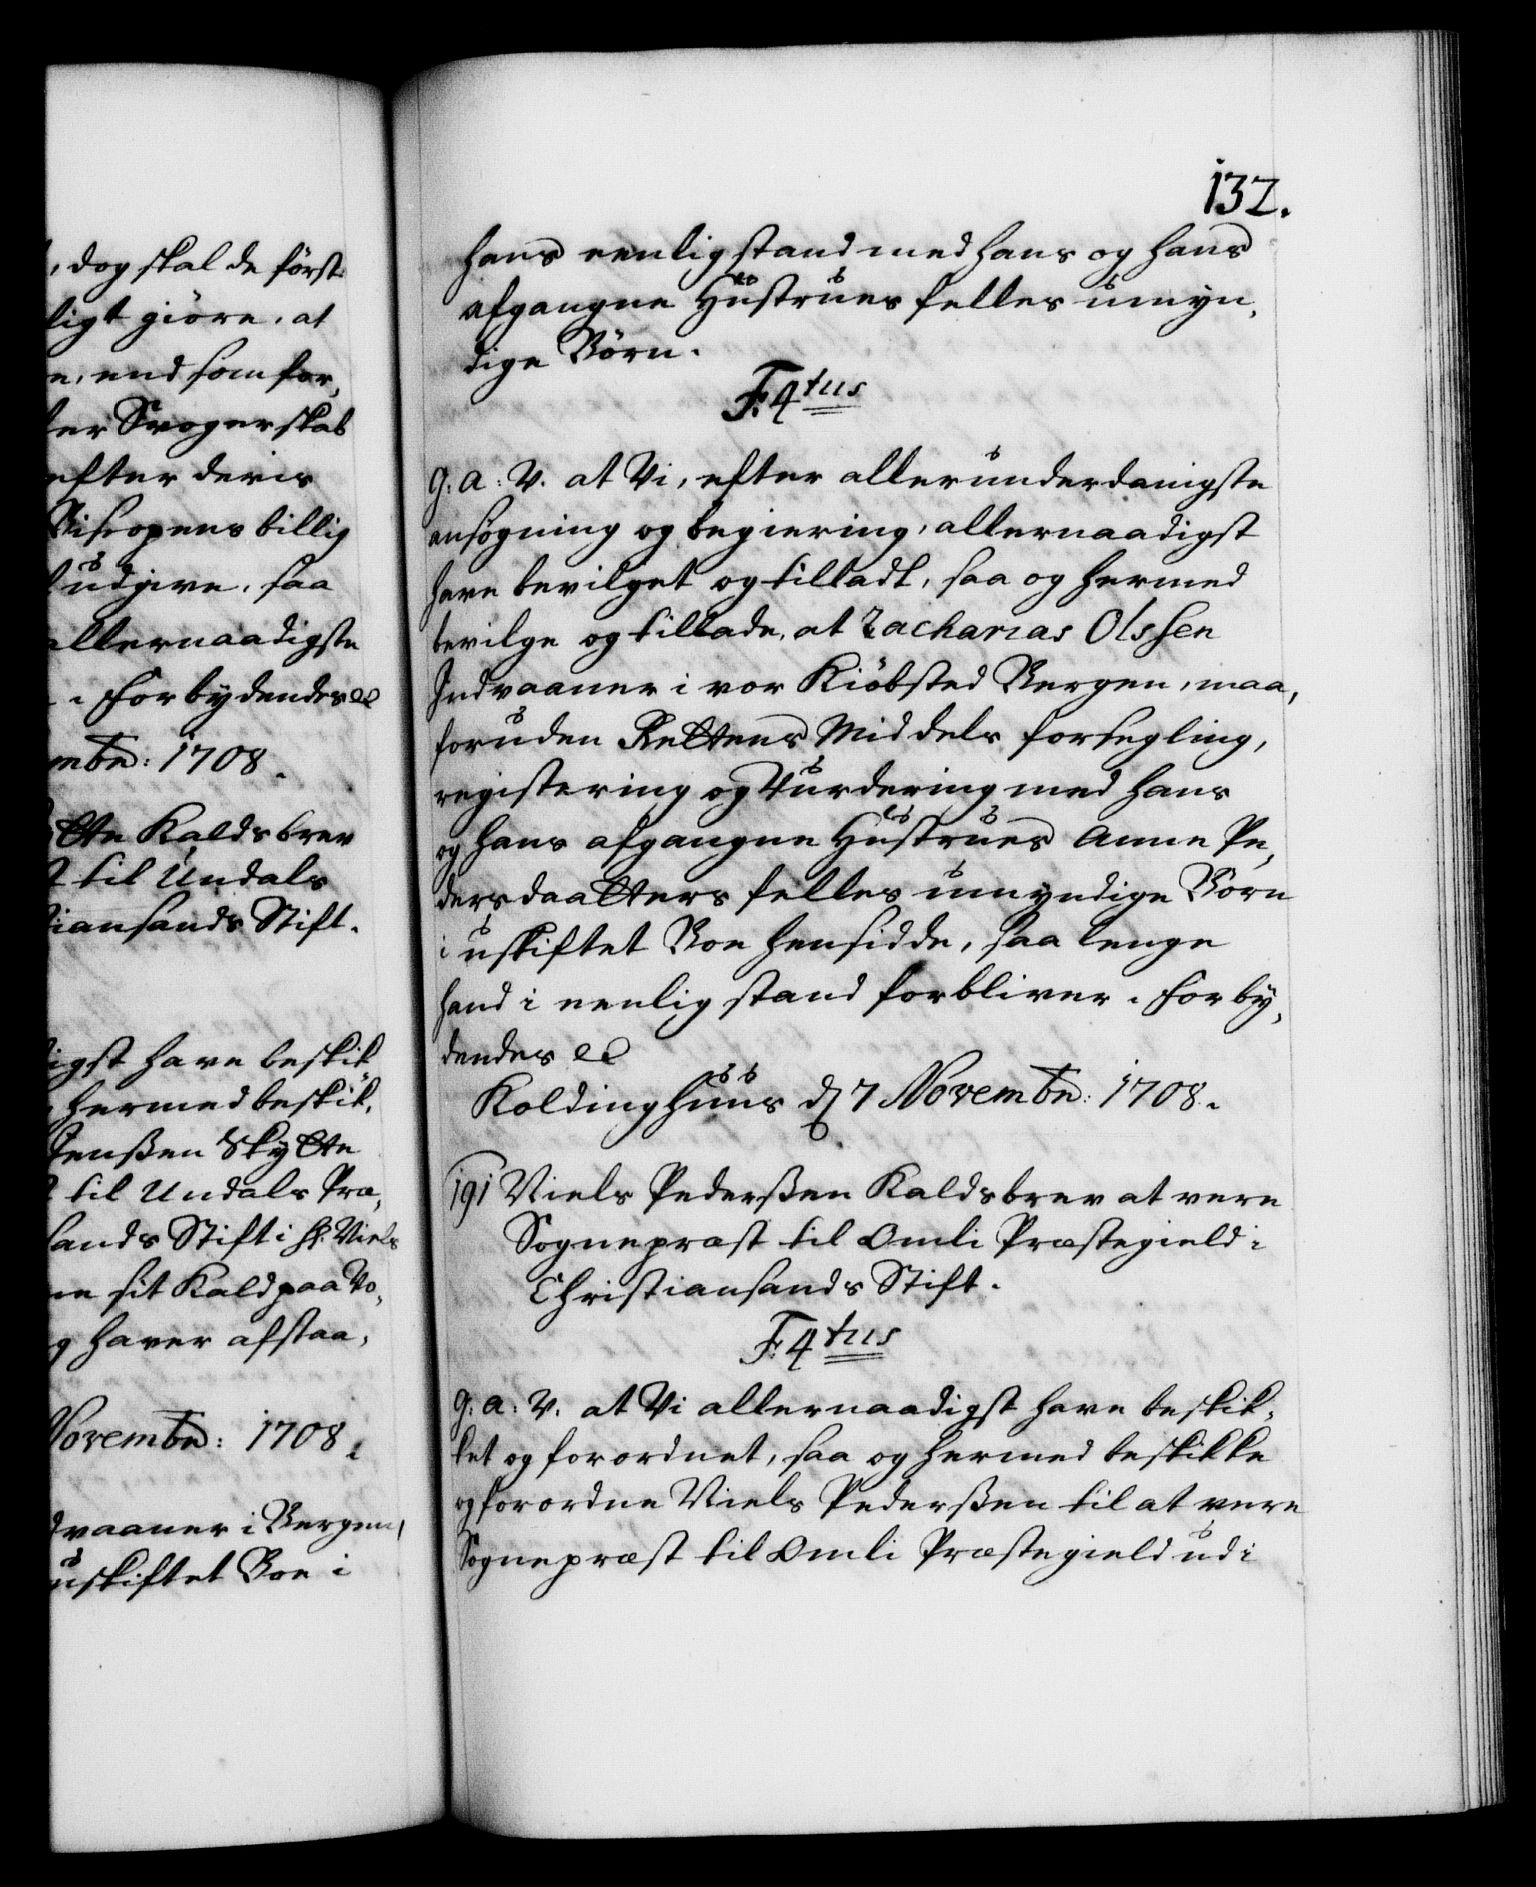 , dog skal de först
ligt giöre, at
e, end som for,
ler Svogerskab
efter deris
Biscopens billig
udgive, saa
allernaadigste
. Forbydendes &c
embr: 1708.
ötte Kaldsbrev
til Undals
tiansands Stift.
igst have beskik,
hermed beskik,
Jenssen Skytte
til Undals Præ,
sands Stift i Hr. Niels
ne sit Kald paa Vo,
g haver afstaa,
Novembr: 1708.
dvaaner i Bergen,
uskiftet Boe i
132.
hans eenlig stand med hans og hans
afgangne Hustrues felles umyn,
dige Börn.
F: 4tus
G: A: V. at Vi, efter allerunderdanigste
ansögning og begiering, allernaadigst
have bevilget og tilladt, saa og hermed
bevilge og tillade, at Zacharias Olssen
Indvaaner i vor Kiöbsted Bergen, maa,
foruden Rettens Middels forsegling,
registering og Vurdering med hans
og hans afgangne Hustrues Anne Pe,
dersdaatters felles umyndige Börn
i uskiftet Boe hensidde, saa lenge
hand i eenlig stand forbliver. Forby,
dendes &c
Koldinghuus d 7 Novembr: 1708.
191 Niels Pederssen Kaldsbrev at vere
Sognepræst til Omli Præstegield i
Christiansands Stift.
F: 4tus
G: A: V. at Vi allernaadigst have beskik,
ket og forordnet, saa og hermed beskikke
og forordne Niels Pederssen til at vere
Sognepræst til Omli Præstegield udi